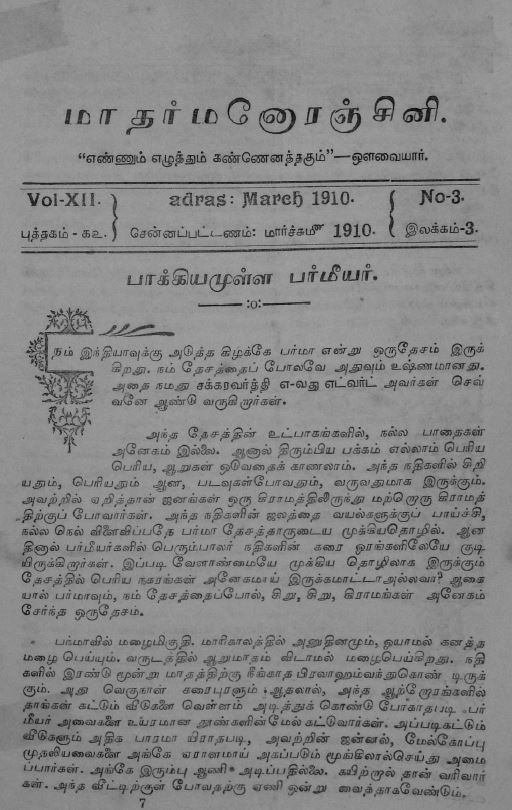 மாதர்மனோரஞ்சினி.
“எண்ணும் எழுத்தும் கண்ணெனத்தகும்”—ஔவையார்.
Vol-XII. adras: March 1910. No-3.
புத்தகம் - கஉ. சென்னப்பட்டணம்: மார்ச்சுமீ 1910. இலக்கம்-3.
பாக்கியமுள்ள பர்மீயர்.
—:o:—
நம் இந்தியாவுக்கு அடுத்த கிழக்கே பர்மா என்று ஒருதேசம் இருக்
கிறது. நம் தேசத்தைப் போலவே அதுவும் உஷ்ணமானது.
அதை நமது சக்கரவர்த்தி எ-வது எட்வர்ட் அவர்கள் செவ்
வனே ஆண்டு வருகிறார்கள்.
அந்த தேசத்தின் உட்பாகங்களில், நல்ல பாதைகள்
அனேகம் இல்லை. ஆனால் திரும்பிய பக்கம் எல்லாம் பெரிய
பெரிய, ஆறுகள் ஓடுவதைக் காணலாம். அந்த நதிகளில் சிறி
யதும், பெரியதும் ஆன, படவுகள்போவதும், வருவதுமாக இருக்கும்.
அவற்றில் ஏறித்தான் ஜனங்கள் ஒரு கிராமத்திலிருந்து மற்றொரு கிராமத்
திற்குப் போவார்கள். அந்த நதிகளின் ஜலத்தை வயல்களுக்குப் பாய்ச்சி,
நல்ல நெல் விளைவிப்பதே பர்மா தேசத்தாருடைய முக்கியதொழில். ஆன
தினால் பர்மீயர்களில் பெரும்பாலர் நதிகளின் கரை ஓரங்களிலேயே குடி
யிருக்கிறார்கள். இப்படி வேளாண்மையே முக்கிய தொழிலாக இருக்கும்
தேசத்தில் பெரிய நகரங்கள் அனேகமாய் இருக்கமாட்டா அல்லவா? ஆகை
யால் பர்மாவும், நம் தேசத்தைப்போல், சிறு, சிறு, கிராமங்கள் அனேகம்
சேர்ந்த ஒருதேசம்.
பர்மாவில் மழைமிகுதி. மாரிகாலத்தில் அனுதினமும், ஓயாமல் கனத்த
மழை பெய்யும். வருடத்தில் ஆறுமாதம் விடாமல் மழைபெய்கிறது. நதி
களில் இரண்டு மூன்று மாதத்திற்கு நீங்காத பிரவாஹம்வந்துகொண் டிருக்
கும். அது வெகுதூரம் கரைபுரளும் ஆதலால், அந்த ஆற்றோரங்களில்
தாங்கள் கட்டும் வீடுகளை வெள்ளம் அடித்துக் கொண்டு போகாதபடி பர்
மீயர் அவைகளை உயரமான தூண்களின்மேல் கட்டுவார்கள். அப்படிகட்டும்
வீடுகளும் அதிக பாரமா யிராதபடி, அவற்றின் ஜன்னல், மேல்கோப்பு
முதலியவைகளை அங்கே ஏராளமாய் அகப்படும் மூங்கிலால்செய்து அமை
ப்பார்கள். அங்கே இரும்பு ஆணி அடிப்பதில்லை. கயிற்றால் தான் வரிவார்
கள். அந்த வீட்டிற்குள் போவதற்கு ஏணி ஒன்று வைத்தாகவேண்டும்.
7